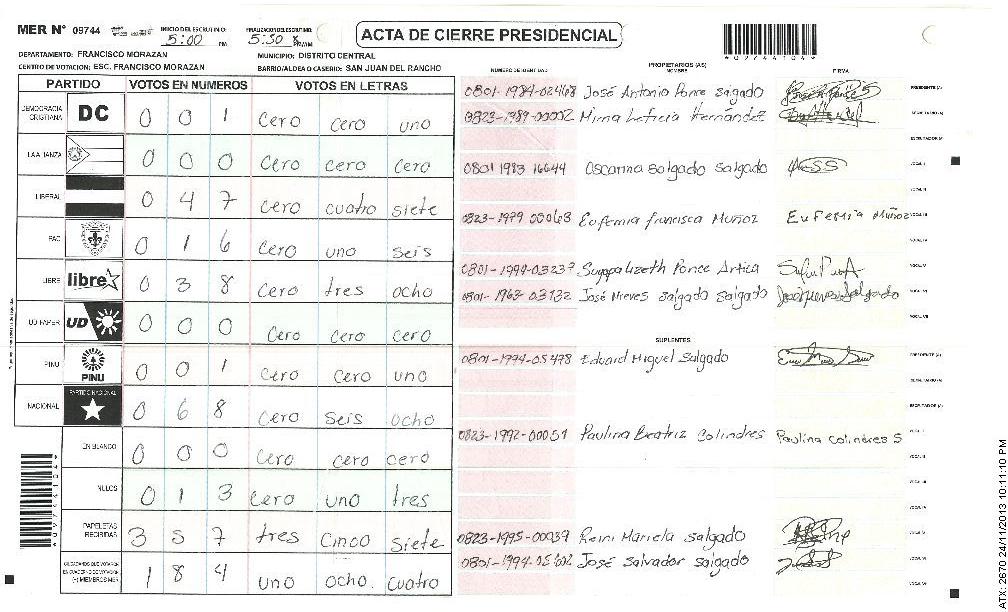 MER Nº 09744
INICIO DEL ESCRUTINIO: 5:00 PM
FINALIZACION DEL ESCRUTINIO: 5:50
ACTA DE CIERRE PRESIDENCIAL
DEPARTAMENTO: FRANCISCO MORAZAN
MUNICIPIO: DISTRITO CENTRAL
CENTRO DE VOTACION: ESC. FRANCISCO MORAZAN
BARRIO/ALDEA O CASERIO: SAN JUAN DEL RANCHO
PARTIDO VOTOS EN NUMEROS VOTOS EN LETRAS
DEMOCRACIA CRISTIANA DC 0 0 1 cero cero uno
LA ALIANZA 0 0 0 cero cero cero
LIBERAL 0 4 7 cero cuatro siete
PAC 0 1 6 cero uno seis
LIBRE libre 0 3 8 cero tres ocho
UD FAPER UD 0 0 0 cero cero cero
PINU PINU 0 0 1 cero cero uno
NACIONAL PARTIDO NACIONAL 0 6 8 cero seis ocho
EN BLANCO 0 0 0 cero cero cero
NULOS 0 1 3 cero uno tres
PAPELETAS RECIBIDAS 3 5 7 tres cinco siete
1 8 4 uno ocho. cuatro
NUMERO DE IDENTIDAD PROPIETARIOS (AS) NOMBRE FIRMA
0801-1984-02468 José Antonio Ponce Salgado PRESIDENTE (A)
0823-1989-00002 Mirna Leticia Hernandez SECRETARIO (A)
ESCRUTADOR (A)
0801 1983 16644 Oscarina Salgado Salgado VOCAL I
VOCAL II
0823-1979 00068 Eufemia francisca Muñoz Eufemia Muñoz VOCAL III
VOCAL IV
0801-1994-03237 Suyapa lizeth Ponce Artica VOCAL V
0801-1963-03132 José Nieves Salgado Salgado VOCAL VI
VOCAL VII
SUPLENTES
0801-1994-05478 Eduard Miguel Salgado PRESIDENTE (A)
SECRETARIO (A)
ESCRUTADOR (A)
0823-1992-00051 Paulina Beatriz Colindres Paulina Colindres S VOCAL I
VOCAL II
VOCAL III
VOCAL IV
0823-1995-00039 Reini Mariela Salgado VOCAL V
0801-1994- José Salvador Salgado VOCAL VI
VOCAL VII
*09744104*
ATX: 2670 24/11/2013 10:11:10 PM